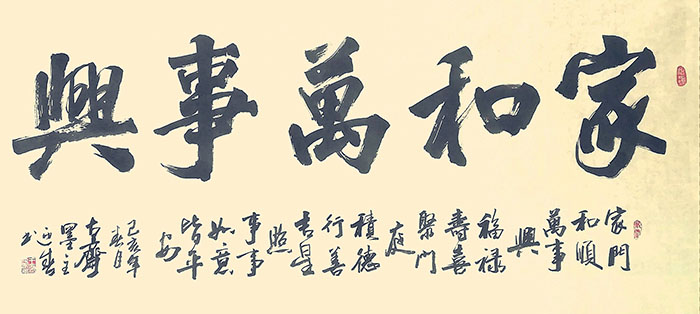 家和萬事興
家門
和順
萬事
興
福禄
壽喜
聚門
庭
積德
行善
吉星
照
事事
如意
皆平
安
己亥年
春月
古齊
墨主
书